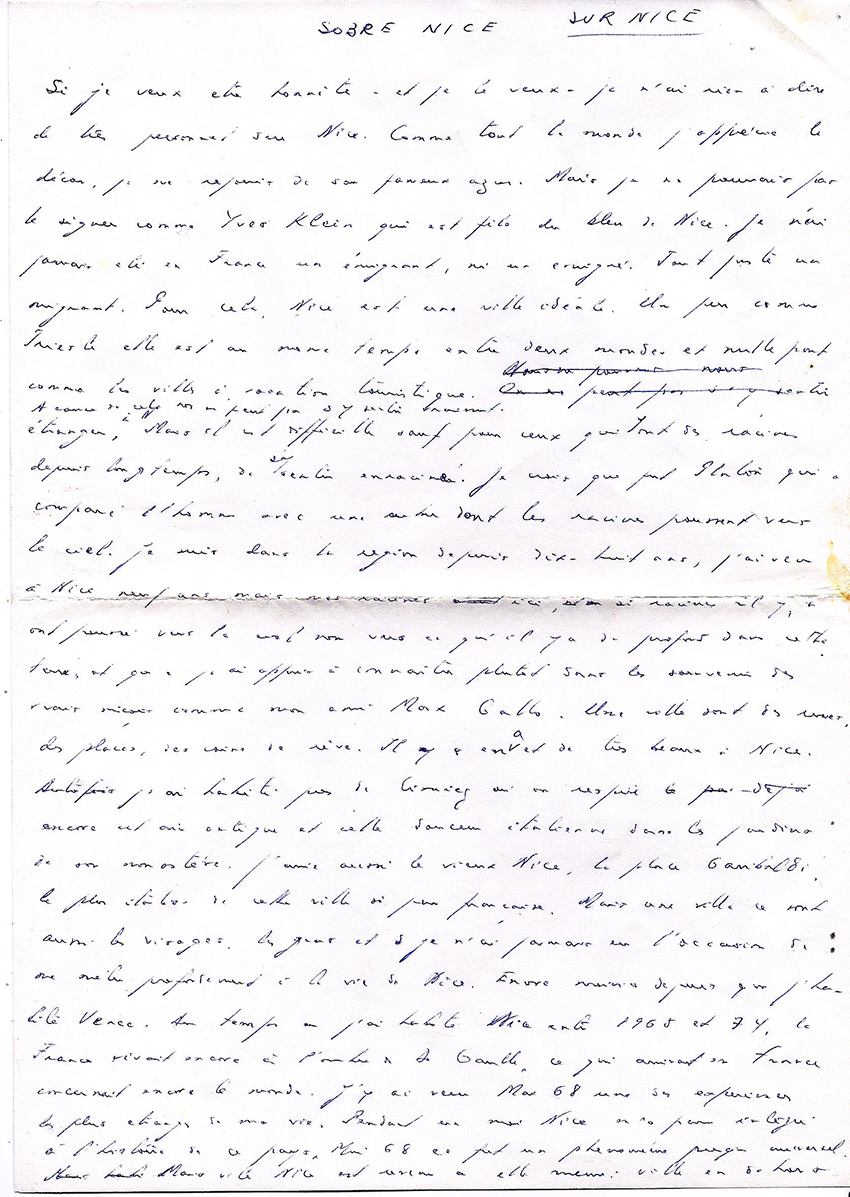 SOBRE NICE SUR NICE
Si je veux être honnête - et je le veux - je n'ai rien à dire
de très personnel sur Nice. Comme tout le monde j'apprécie le
décor, je me réjouis de son fameux azur. Mais je ne pourrais pas
le signer comme Yves Klein qui est fils du bleu de Nice. Je n'ai
jamais été en France un émigrant, ni un émigré. Tout juste un
migrant. Pour cela, Nice est une ville idéale. Un peu comme
Trieste elle est en même temps entre deux mondes et nulle part
comme les villes à vocation touristique.
A cause de cela on ne peut pas s'y sentir vraiment
étranger. Mais il est difficile sauf pour ceux qui ont des racines
depuis longtemps, de se sentir enraciné. Je crois que fut Platon qui a
comparé l'homme avec une arbre dont les racines poussent vers
le ciel. Je suis dans la région depuis dix-huit ans, j'ai vécu
à Nice neuf ans mais mes racines ici, si racines il y a
ont poussé vers le ciel non vers ce qu'il y a de profond dans cette
terre, et que je ai appris à connaître plutôt dans les souvenirs des
vrais niçois comme mon ami Max Gallo. Une ville sont des rues,
des places, des coins de rêve. Il y a en a et de très beaux à Nice.
Autrefois j'ai habité près de Cimiez où on respire
encore cet air antique et cette douceur italienne dans les jardins
de son monastère. J'aime aussi le vieux Nice, la place Garibaldi,
la plus italienne de cette ville si peu française. Mais une ville ce sont
aussi les visages, les gens et je n'ai jamais eu l'occasion de
me mêler profondement à la vie de Nice. Encore moins depuis que j'ha-
bite Vence. Au temps où j'ai habité Nice entre 1965 et 74, la
France vivait encore à l'ombre de De Gaulle, ce qui arrivait en France
concernait encore le monde. J'y ai vécu Mai 68 une des experiences
les plus etranges de ma vie. Pendant un mois Nice m'a paru intégré
à l'histoire de ce pays. Mai 68 ce fut un phénomène presque universel.
Mais vite Nice est revenu a elle meme: ville en dehors